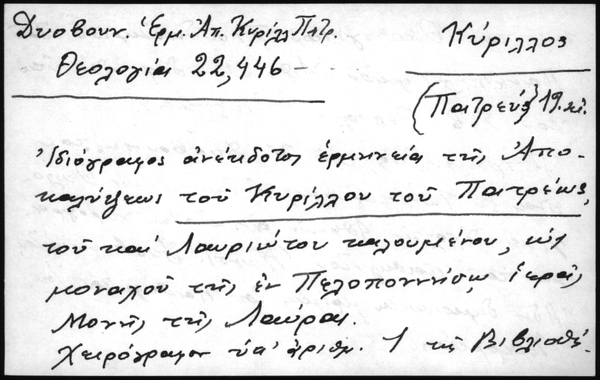 Δυοβουν. Ἑρμ. Ἀπ. Κυρίλλ Πατρ.
Κύριλλος
Θεολογία 22,446 –
(Πατρεύς) 19. αἰ.
Ἰδιόγραφος ἀνέκδοτος ἑρμηνεία τῆς Ἀπο-
καλύψεως τοῦ Κυρίλλου τοῦ Πατρέως,
τοῦ καὶ Λαυριώτου καλουμένου, ὡς
μοναχοῦ τῆς ἐν Πελοποννήσῳ ἱερᾶς
Μονῆς τῆς Λαύρας.
Χειρόγραφον ὑπ' ἀριθμ. 1 τῆς Βιβλιοθή-